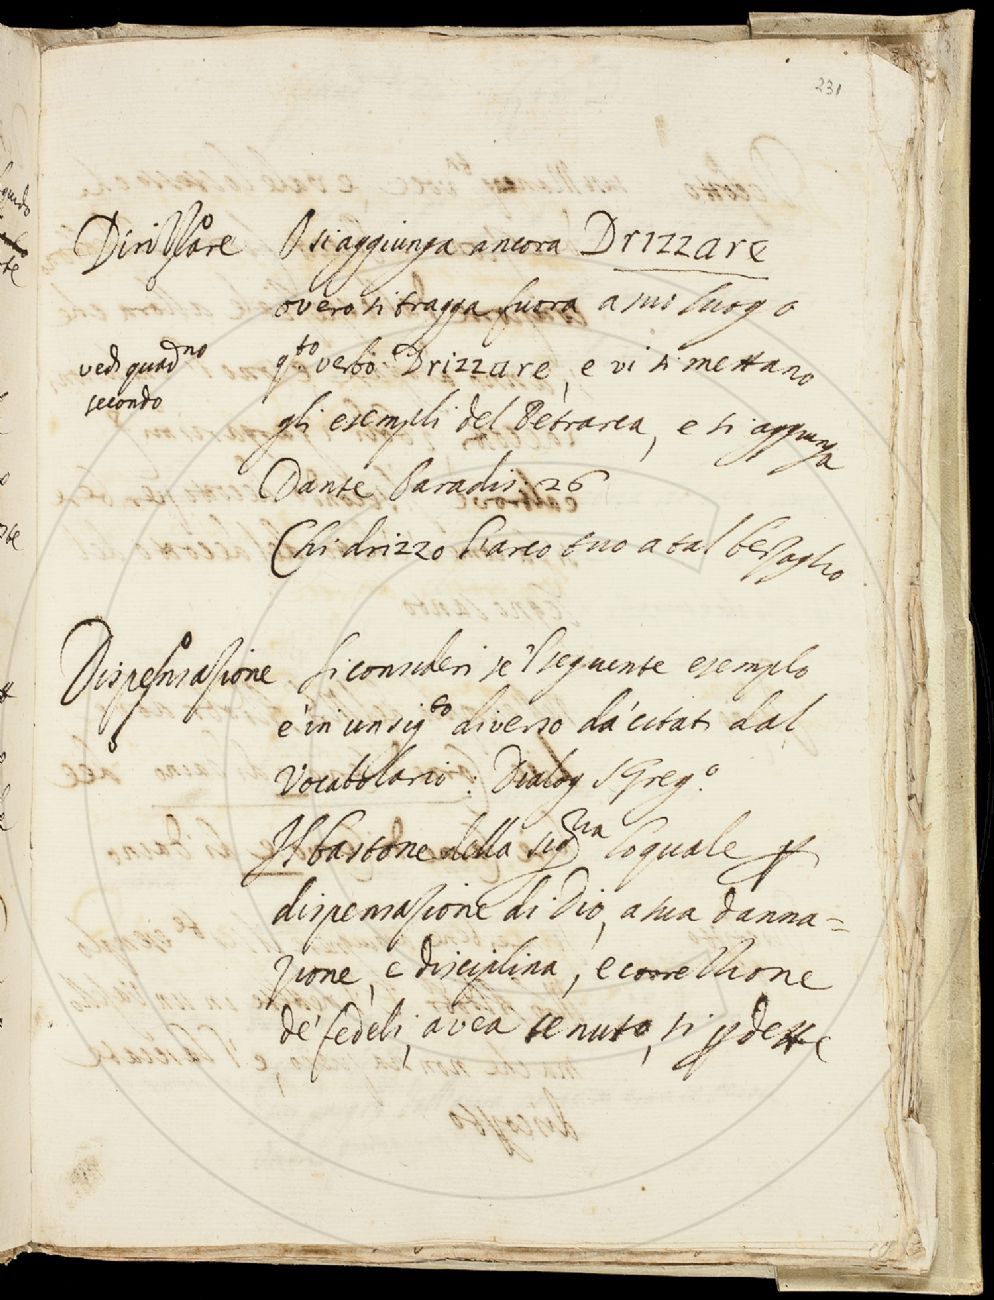 231
Dirizzare O si aggiunga ancora Drizzare
overo si tragga fuora a suo luogo
q.to verbo Drizzare, e vi si mettano
vedi quad.no
secondo
gli esempli del Petrarca, e si aggiunga
Dante Paradis. 26
Chi drizzo l'arco tuo a tal berzaglio
Dispensazione Si consideri se 'l seguente esemplo
è in un sig.to diverso da' citati dal
Vocabolario: Dialog S Greg.o
Il bastone della sig.ria loquale p
dispensazione di Dio, a sua danna=
zione, e disciplina, e correzzione
de' fedeli, avea tenuto, si pdette